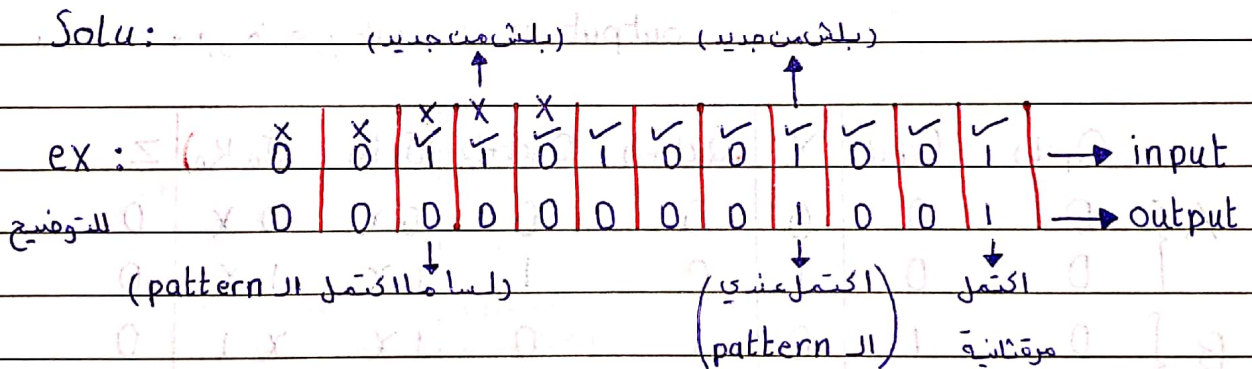 Solu:
(بلش من جديد) (بلش من جديد)
x x x x x
✓ ✓ ✓ ✓ ✓ ✓ ✓ ✓ ✓ ✓
ex : 0 0 1 1 0 1 0 0 1 0 0 1 → input
للتوضيح 0 0 0 0 0 0 0 0 1 0 0 1 → output
(لسا ما اكتمل ال pattern) (اكتمل عندي اكتمل
ال pattern) مرة ثانية